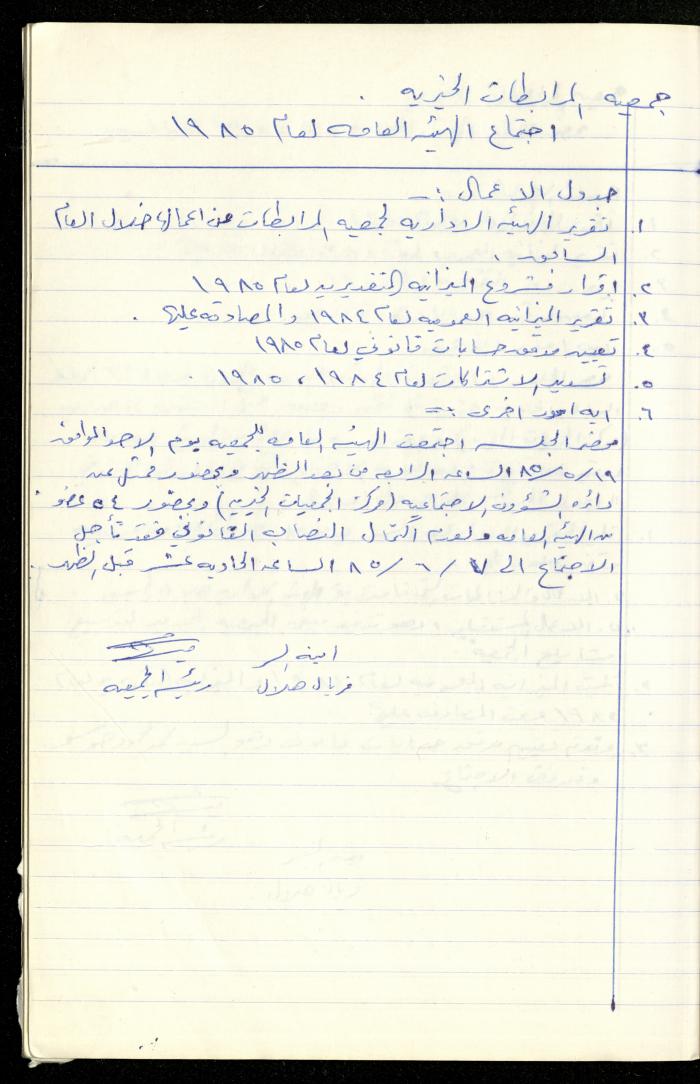 جمعيه المرابطات الخيريه .
اجتماع الهيئه العامه لعام ١٩٨٥
جدول الاعمال :-
١. تقرير الهيئه الاداريه لجمعيه المرابطات عن اعمالها خلال العام
السابق .
٢. اقرار مشروع الميزانيه التقديريه لعام ١٩٨٥
٣. تقرير الميزانيه العموميه لعام ١٩٨٤ والمصادقه عليها .
٤. تعيين مدقق حسابات قانوني لعام ١٩٨٥
٥. تسديد الاشتراكات لعام ١٩٨٤ ، ١٩٨٥ .
٦. ايه امور اخرى :-
محضر الجلسه اجتمعت الهيئه العامه للجمعيه يوم الاحد الموافق
١٩/٥/٨٥ الساعه الرابعه من بعد الظهر وبحضور ممثل عن
دائره الشؤون الاجتماعيه (مركز الجمعيات الخيريه) وبحضور ٥٤ عضو
من الهيئه العامه ولعدم اكتمال النصاب القانوني فقد تأجل
الاجتماع الى ٧/٦/٨٥ الساعه الحاديه عشر قبل الظهر .
امينه السر
فريال هلال رئيسه الجمعيه